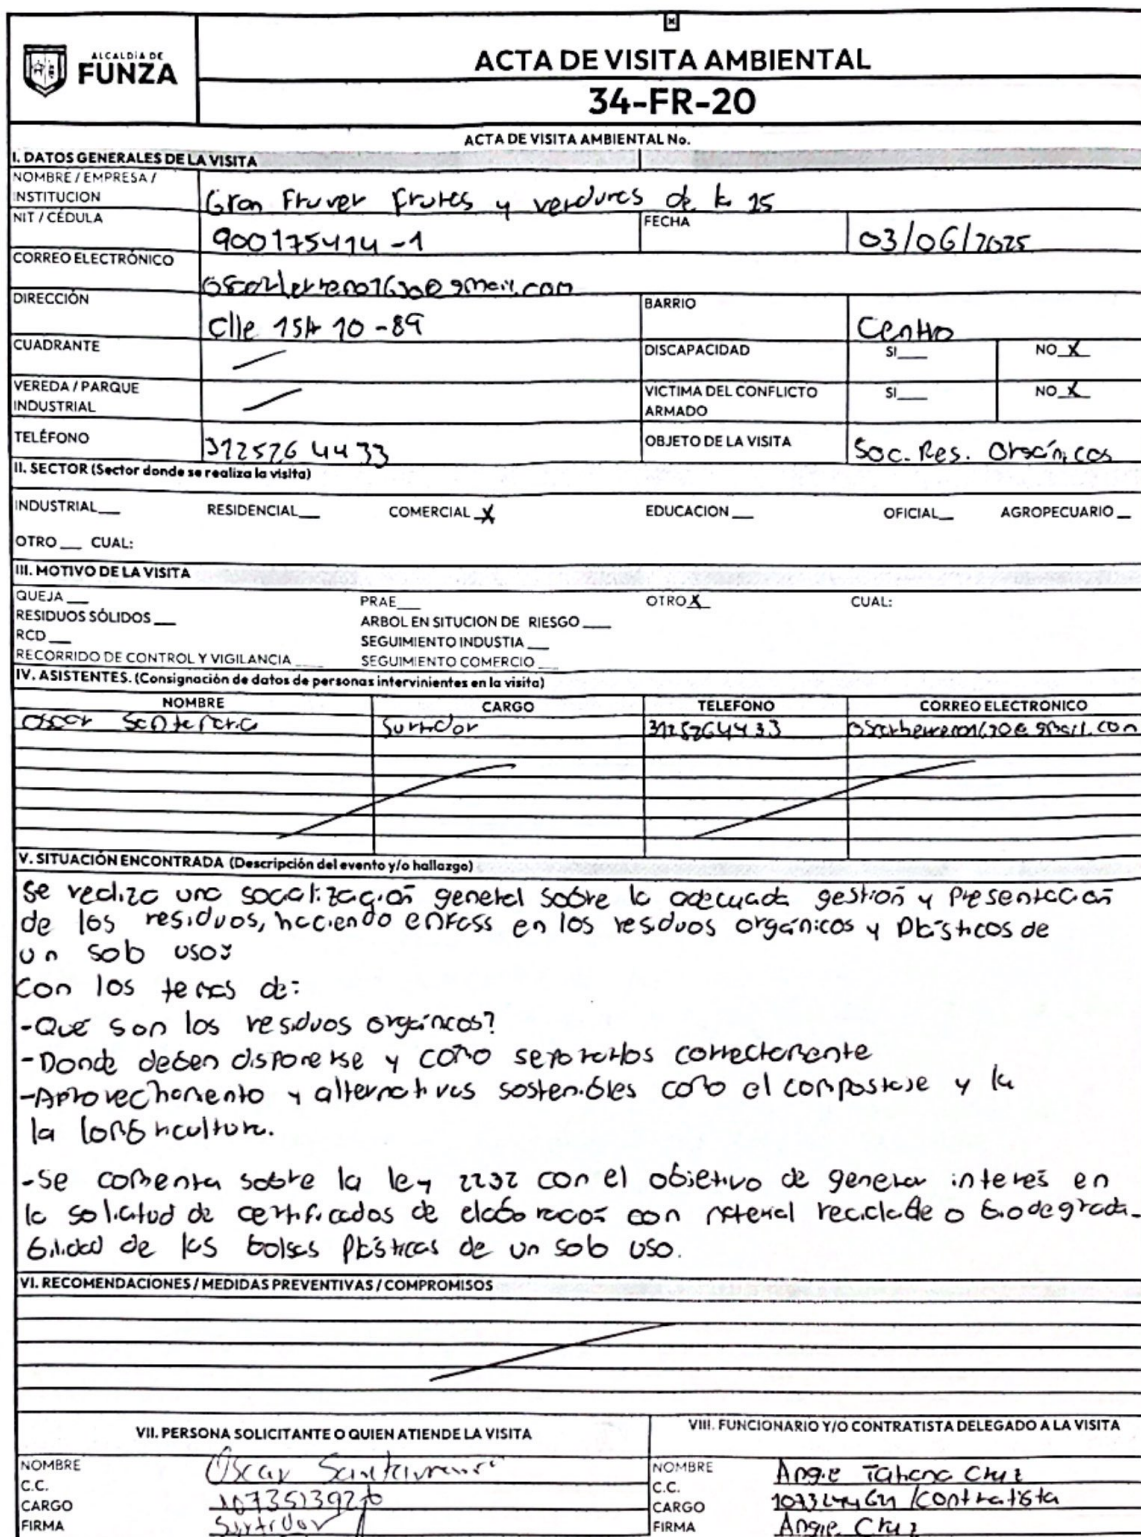 ALCALDÍA DE
FUNZA
ACTA DE VISITA AMBIENTAL
34-FR-20
ACTA DE VISITA AMBIENTAL No.
I. DATOS GENERALES DE LA VISITA
NOMBRE / EMPRESA / INSTITUCION Gran Fruver frutas y verduras de la 15
NIT / CÉDULA 900175414-1 FECHA 03/06/2025
CORREO ELECTRÓNICO @gmail.com
DIRECCIÓN Clle 15A 10-89 BARRIO Centro
CUADRANTE DISCAPACIDAD SI___ NO_X_
VEREDA / PARQUE INDUSTRIAL VICTIMA DEL CONFLICTO ARMADO SI___ NO_X_
TELÉFONO 3125764433 OBJETO DE LA VISITA Soc. Res. Orgánicos
II. SECTOR (Sector donde se realiza la visita)
INDUSTRIAL__ RESIDENCIAL__ COMERCIAL_X EDUCACION__ OFICIAL__ AGROPECUARIO__
OTRO__ CUAL:
III. MOTIVO DE LA VISITA
QUEJA__ PRAE__ OTRO_X_ CUAL:
RESIDUOS SÓLIDOS__ ARBOL EN SITUCION DE RIESGO__
RCD__ SEGUIMIENTO INDUSTIA__
RECORRIDO DE CONTROL Y VIGILANCIA__ SEGUIMIENTO COMERCIO__
IV. ASISTENTES. (Consignación de datos de personas intervinientes en la visita)
NOMBRE CARGO TELEFONO CORREO ELECTRONICO
Oscar Surtidor 3125764433 @gmail.com
V. SITUACIÓN ENCONTRADA (Descripción del evento y/o hallazgo)
Se realiza una socialización general sobre la adecuada gestión y presentación
de los residuos, haciendo enfasis en los residuos orgánicos y plásticos de
un solo uso:
Con los temas de:
-Qué son los residuos orgánicos?
-Donde deben disponerse y como separarlos correctamente
-Aprovechamiento y alternativas sostenibles como el compostaje y la
la lombricultura.
-Se comenta sobre la ley 2232 con el objetivo de generar interés en
la solicitud de certificados de elaboracos con material reciclable o biodegrada-
bilidad de las bolsas plásticas de un solo uso.
VI. RECOMENDACIONES / MEDIDAS PREVENTIVAS / COMPROMISOS
VII. PERSONA SOLICITANTE O QUIEN ATIENDE LA VISITA VIII. FUNCIONARIO Y/O CONTRATISTA DELEGADO A LA VISITA
NOMBRE Oscar NOMBRE Angie Tatiana Cruz
C.C. C.C.
CARGO CARGO Contratista
FIRMA Surtidor FIRMA Angie Cruz